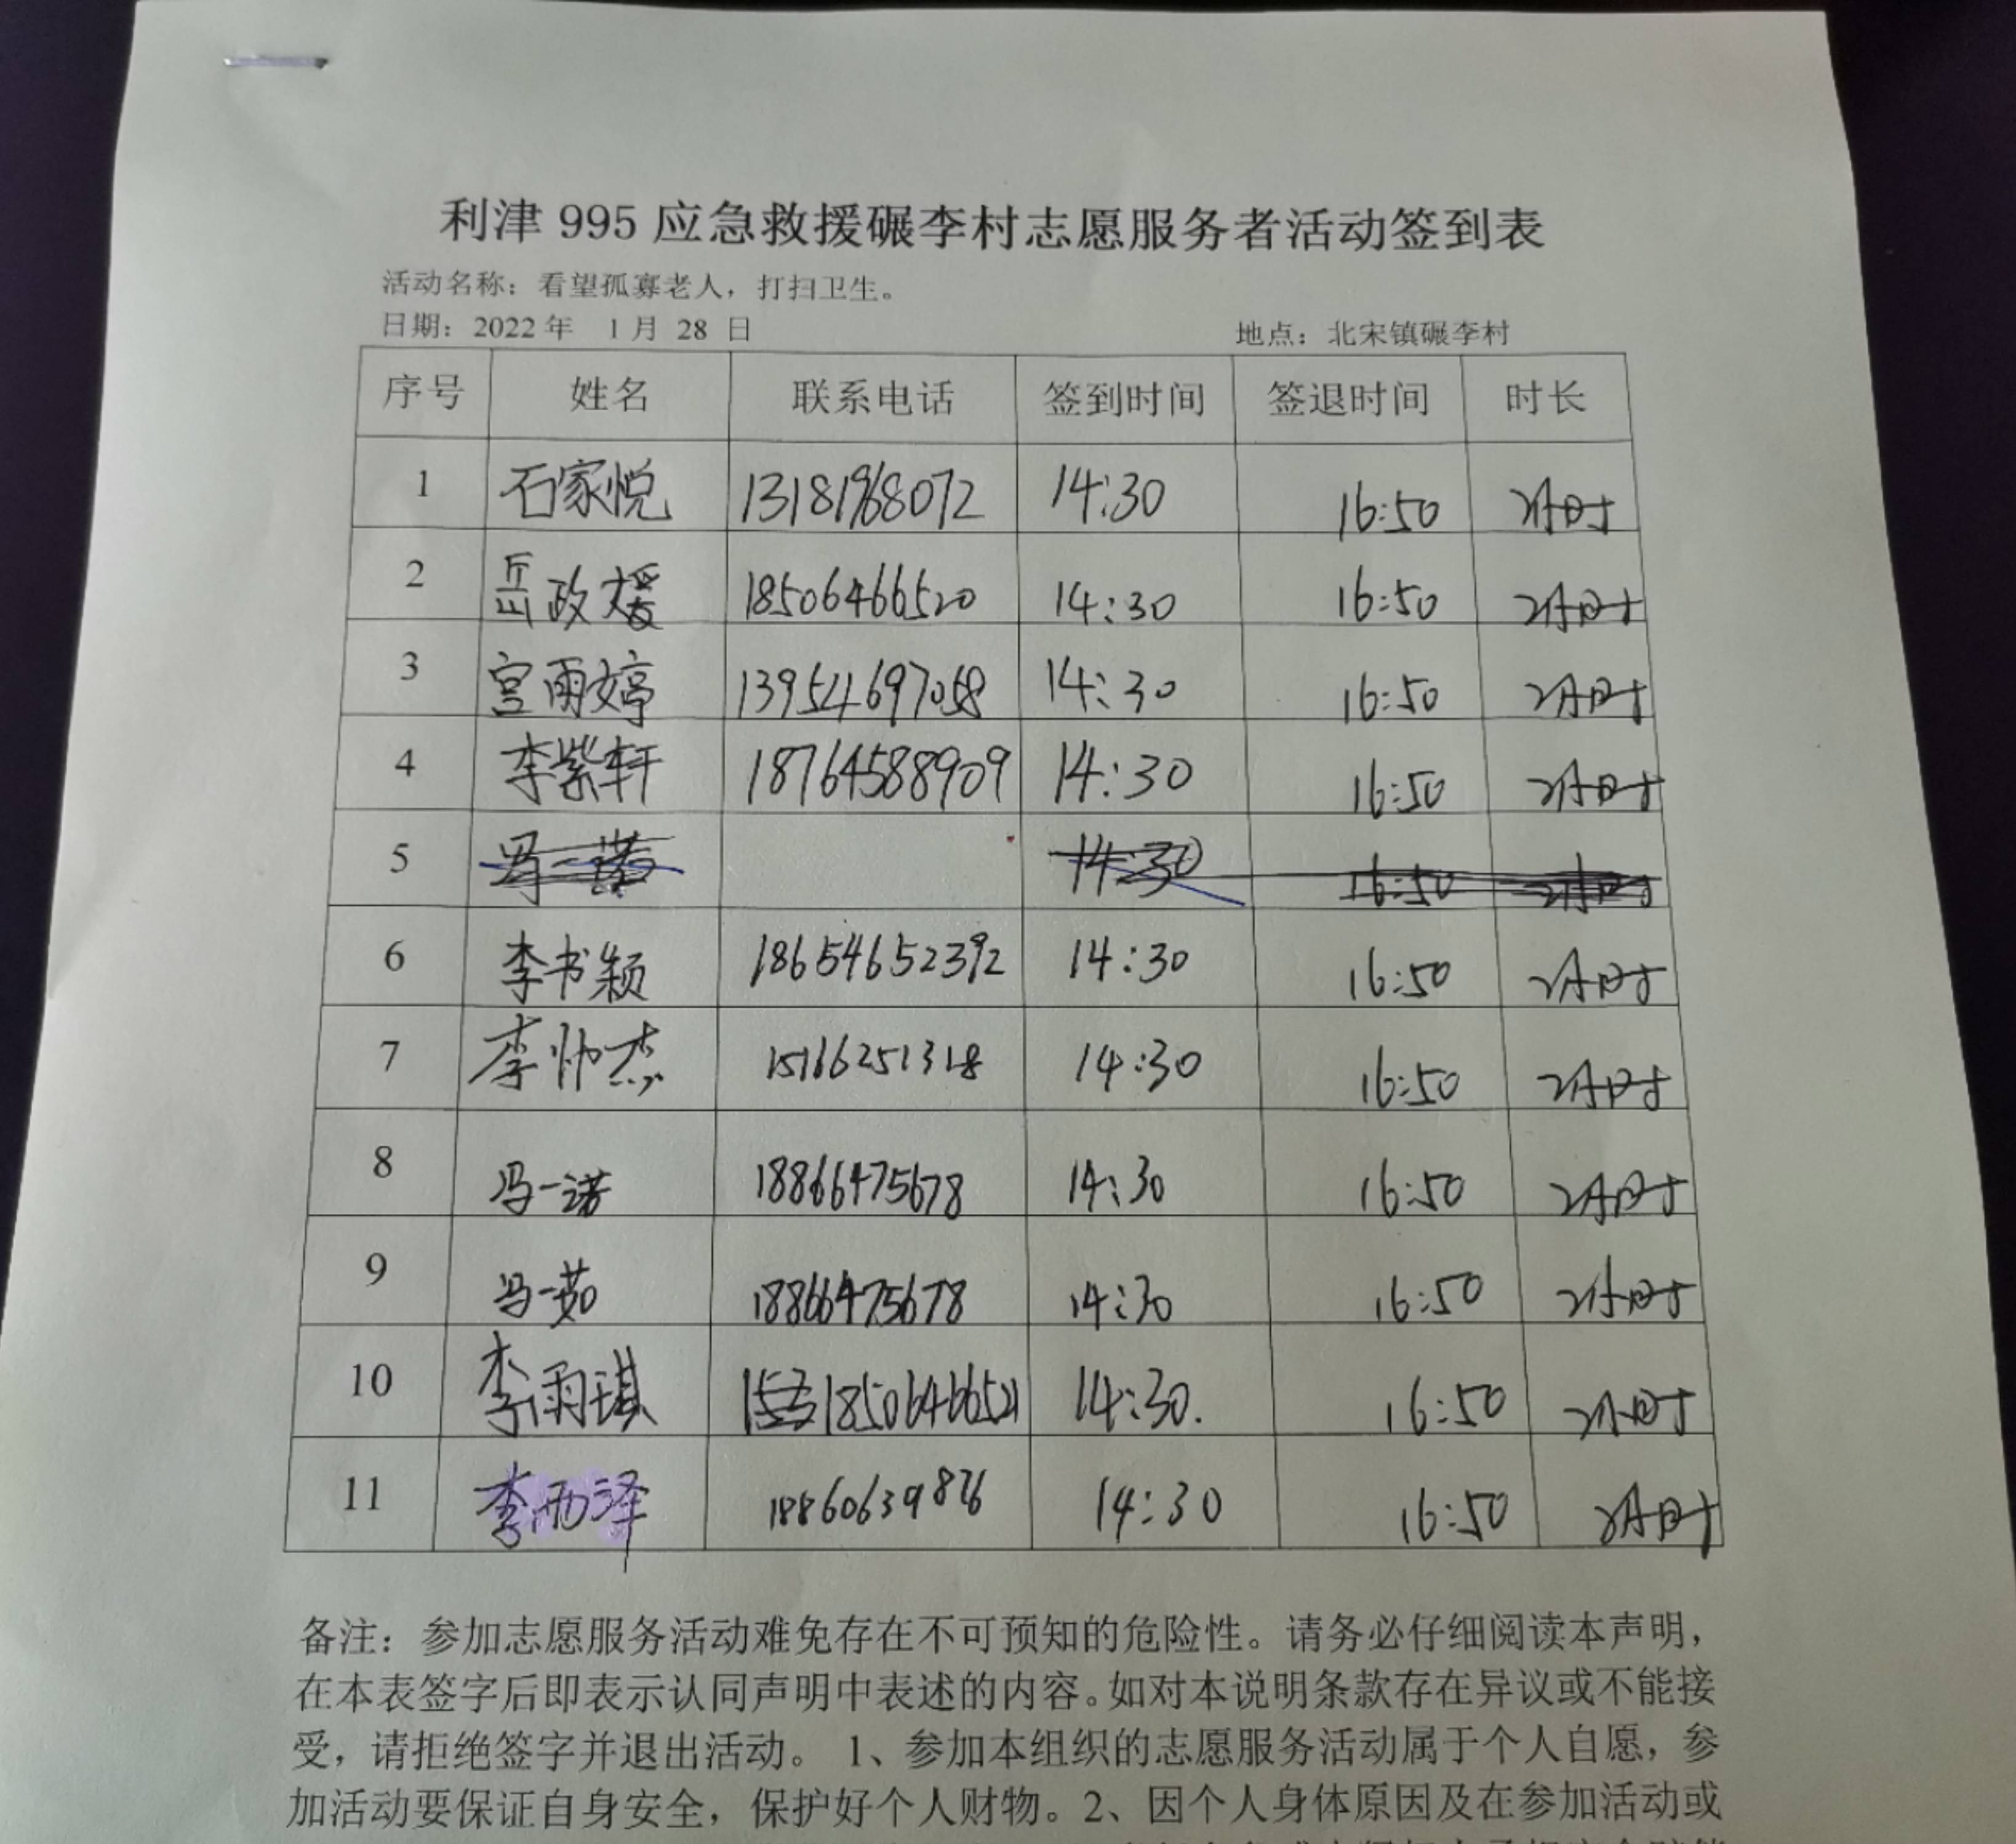 利津 995 应急救援碾李村志愿服务者活动签到表
活动名称：看望孤寡老人，打扫卫生。
日期：2022 年 1 月 28 日 地点：北宋镇碾李村
序号 姓名 联系电话 签到时间 签退时间 时长
1 石家悦 13181968072 14:30 16:50 2小时
2 岳政媛 18506466520 14:30 16:50 2小时
3 宫雨婷 13954697058 14:30 16:50 2小时
4 李紫轩 18764588909 14:30 16:50 2小时
5 冯一诺 14:30 16:50 2小时
6 李书颖 18654652392 14:30 16:50 2小时
7 李帅杰 15166251318 14:30 16:50 2小时
8 冯一诺 18866475678 14:30 16:50 2小时
9 冯一茹 18866475678 14:30 16:50 2小时
10 李雨琪 18506466521 14:30. 16:50 2小时
11 李雨泽 14:30 16:50 2小时
备注：参加志愿服务活动难免存在不可预知的危险性。请务必仔细阅读本声明，
在本表签字后即表示认同声明中表述的内容。如对本说明条款存在异议或不能接
受，请拒绝签字并退出活动。 1、参加本组织的志愿服务活动属于个人自愿，参
加活动要保证自身安全，保护好个人财物。2、因个人身体原因及在参加活动或